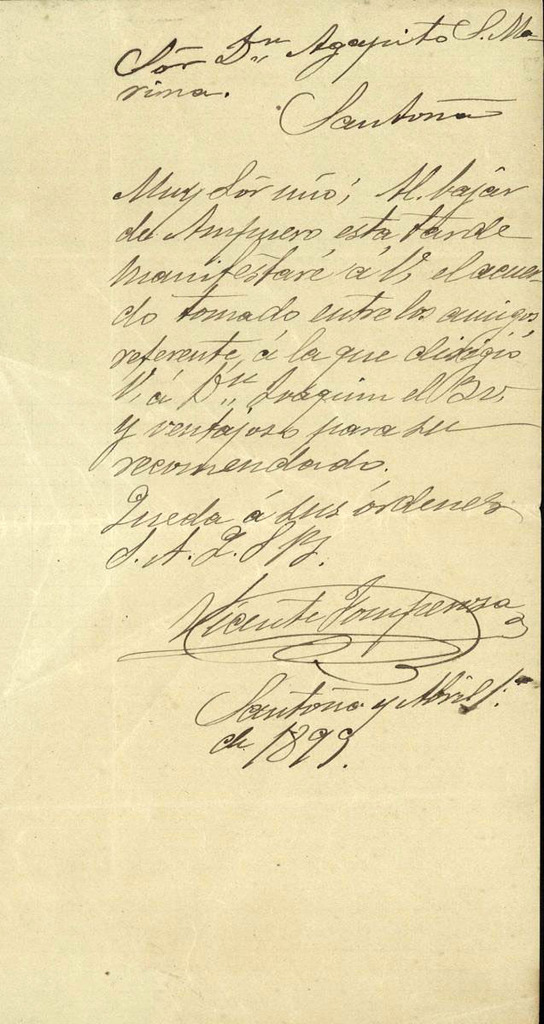 Sór Dn Agapito S. Ma-
rina.
Santoña
Muy Sór mío; Al bajár
de Ampuero esta tarde
manifestaré á V, el acuer-
do tomado entre los amigos,
referente, á la que dirigió
V, á Dn Joaquin el
y ventajoso para su
recomendado.
Queda á sus órdenes
S. A. Q. S B.
Vicente
Santoña y Abril 1º
de 1899.